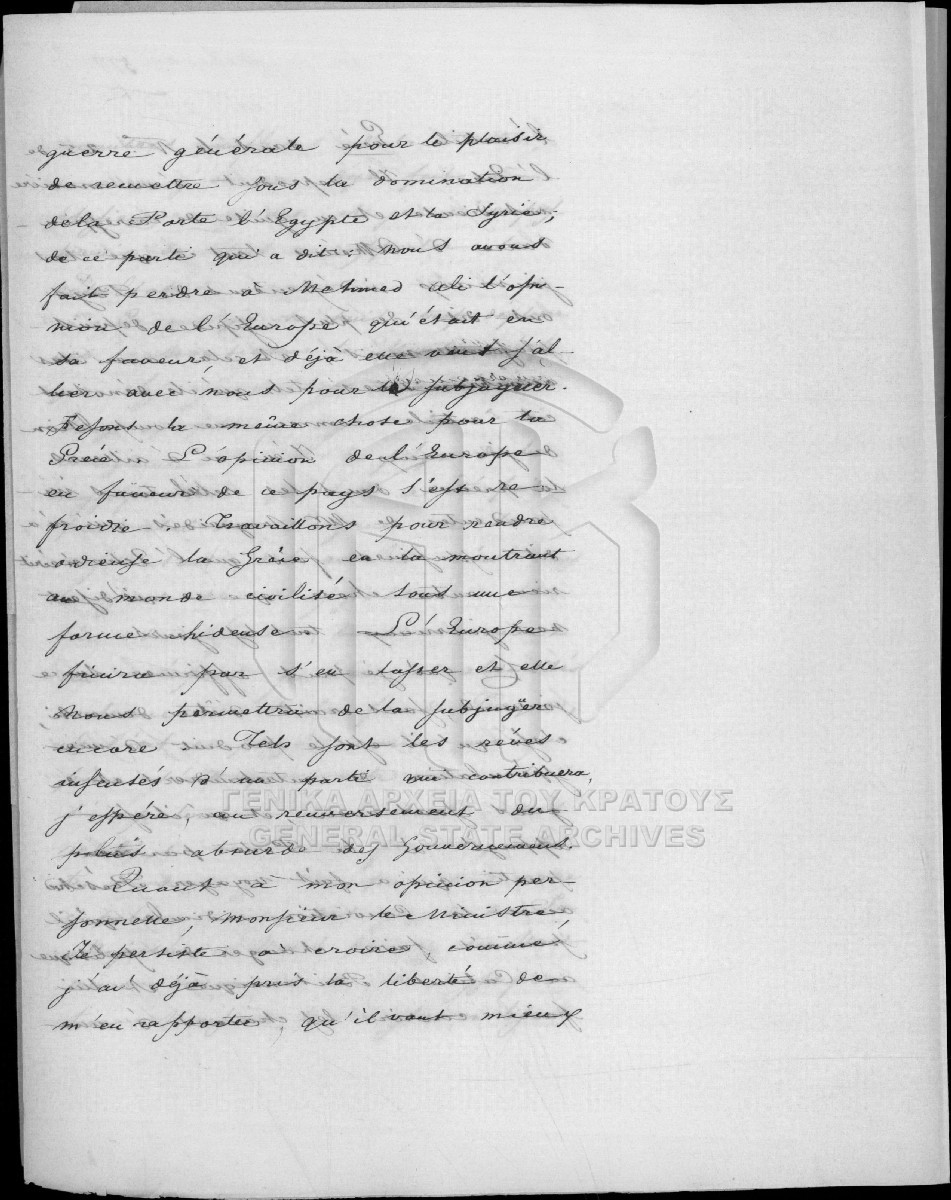 guerre générale pour le plaisir
de remettre sous la domination
de la Porte l'Egypte et la Syrie,
de ce parti qui a dit: Nous avons
fait perdre à Mehmed Ali l'opi-
nion de l'Europe qui était en
sa faveur, et déjà elle s'al-
lier avec nous pour le subjuguer.
Fesons la même chose pour la
Grèce L'opinion de l'Europe
en faveur de ce pays s'est re
froidie. Travaillons pour rendre
odieuse la Grèce en la montrant
au monde civilisé sous une
forme hideuse L'Europe
finira par s'en lasser et elle
nous permettra de la subjuguer
encore Tels sont les rêves
insensés d'un parti qui contribuera,
j'espère, au renversement du
plus absurde des Gouvernemens.
Quant à mon opinion per-
sonnelle, Monsieur le Ministre,
Je persiste à croire, comme
j'ai déjà pris la liberté de
m'en rapporter, qu'il vaut mieux
ΓΕΝΙΚΑ ΑΡΧΕΙΑ ΤΟΥ ΚΡΑΤΟΥΣ
GENERAL STATE ARCHIVES